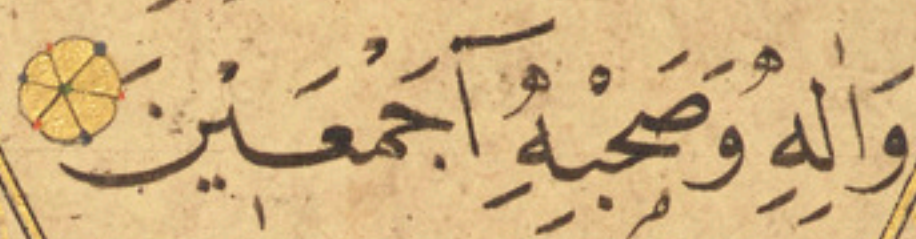 وَاٰلِهِ وَصَحْبِهِ اَجْمَعَيْنَ